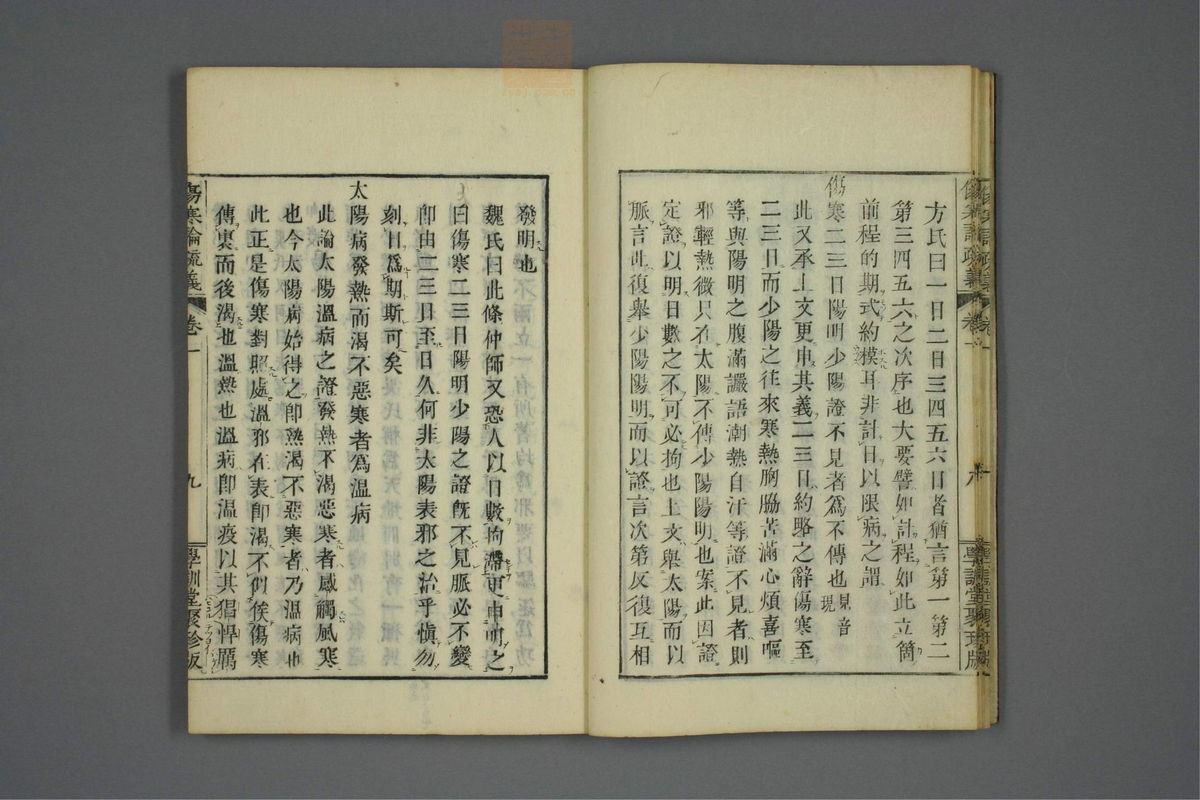 方氏曰一日二日三四五六日者猶言第一第二
第三四五六之次序也大要譬如計程如此立箇
前程的期式約模耳非計日以限病之謂
傷寒二三日陽明少陽證不見者爲不傳也見音現
此又承上文更申其義二三日約略之辭傷寒至
二三日而少陽之往來寒熱胸脇苦滿心煩喜嘔
等與陽明之腹滿讝語潮熱自汗等證不見者則
邪輕熱微只在太陽不傳少陽陽明也案此因證
定證以明日數之不可必拘也上文擧太陽而以
脈言此復擧少陽陽明而以證言次第反復互相
發明也
魏氏曰此條仲師又恐人以日數拘滯更申明之
曰傷寒二三日陽明少陽之證旣不見脈必不變
卽由二三日至日久何非太陽表邪之治乎愼勿
刻日爲期斯可矣
太陽病發熱而渴不惡寒者爲温病
此論太陽溫病之證發熱不渴惡寒者感觸風寒
也今太陽病始得之卽熱渴不惡寒者乃溫病也
此正是傷寒對照處溫邪在表卽渴不侔傷寒
傳裏而後渴也溫熱也溫病卽温疫以其猖悍厲
傷寒論疏義
卷一
九
學訓堂聚珍版